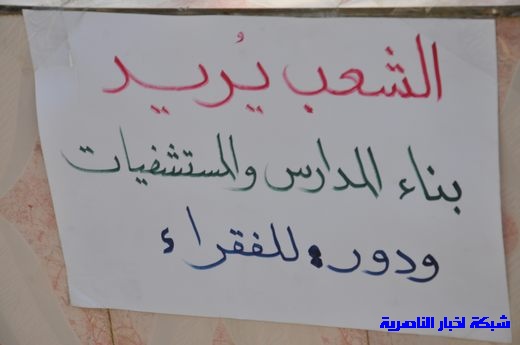 الشعب يُريد
بناء المدارس والمستشفيات
ودور للفقراء
شبكة اخبار الناصرية